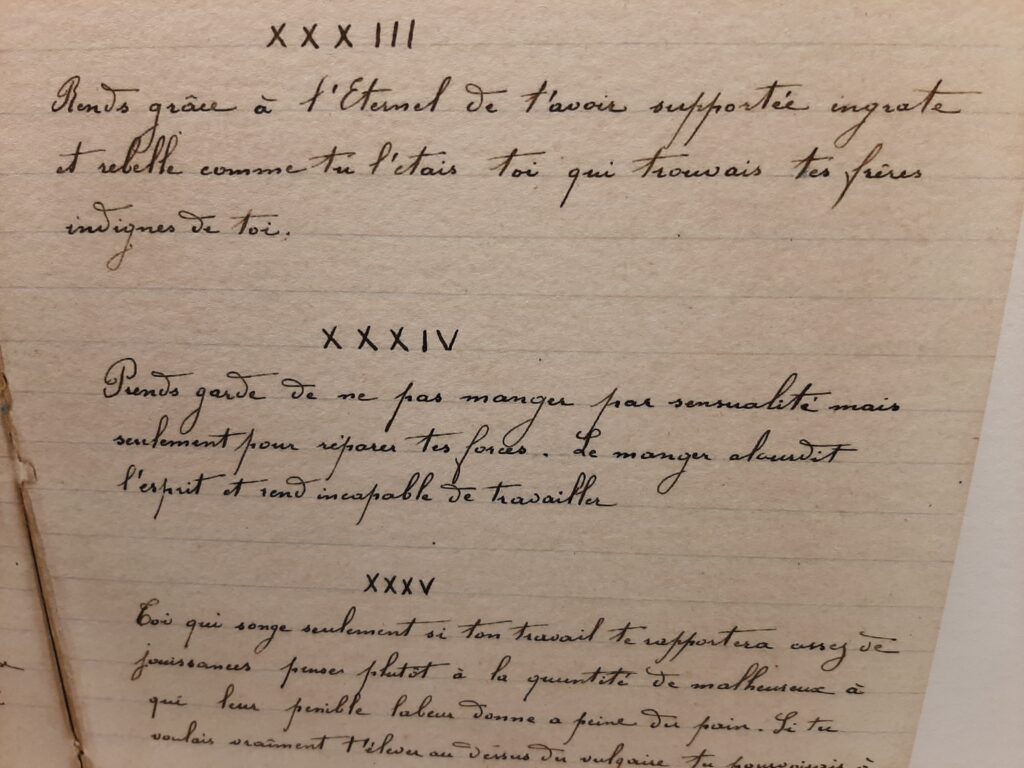 XXXIII
Rends grâce à l'Eternel de t'avoir supportée ingrate
et rebelle comme tu l'étais toi qui trouvais tes frères
indignes de toi.
XXXIV
Prends garde de ne pas manger par sensualité mais
seulement pour réparer tes forces. Le manger alourdit
l'esprit et rend incapable de travailler
XXXV
Toi qui songe seulement si ton travail te rapportera assez de
jouissances penses plutôt à la quantité de malheureux à
qui leur penible labeur donne a peine du pain. Si tu
voulais vraiment t'élever au dessus du vulgaire tu